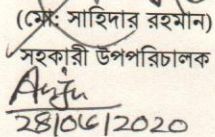 (মো: সাহিদার রহমান)
সহকারী উপপরিচালক
28/06/2020